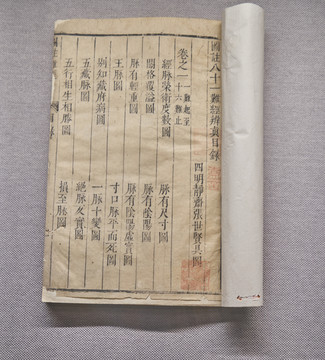 圖註八十一難經辨真目錄
四明靜齋張世賢
卷之一 一難起至二十六難止
經脉榮衛度數圖
脉有尺寸圖
關格覆溢圖
脉有陰陽圖
脉有輕重圖
脉有陰陽虛實圖
王脉圖
寸口脉平而死圖
別知藏府病圖
一脉十變圖
五藏脉圖
虛實圖
五行相生相勝圖
損至脉圖